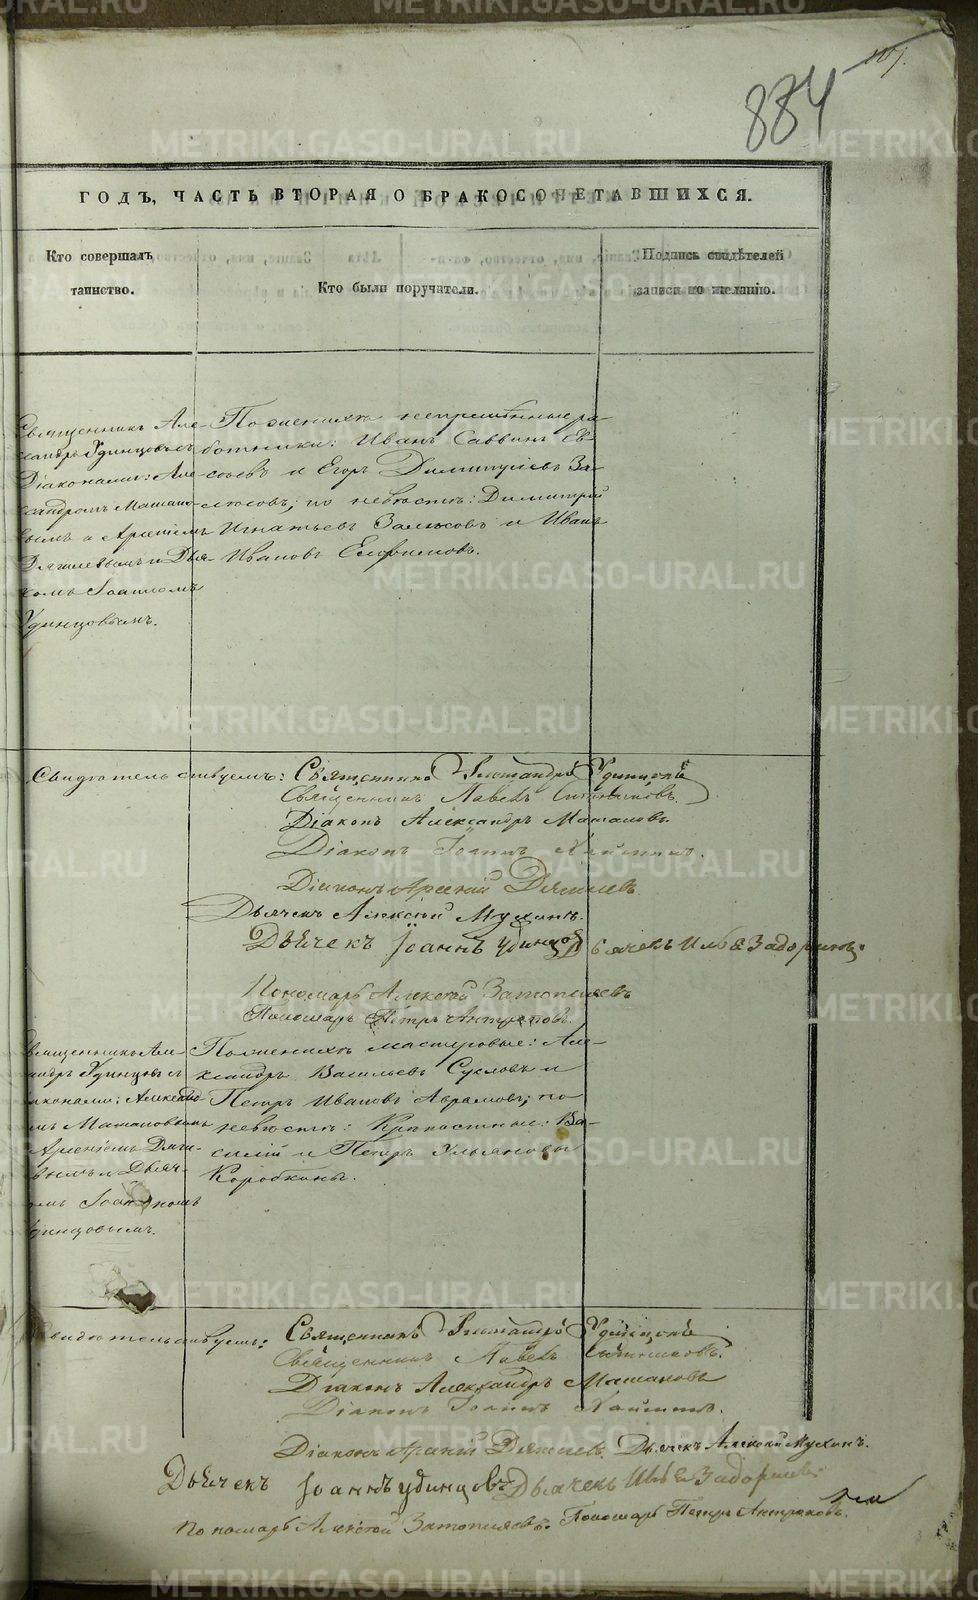 884
ГОДЪ, ЧАСТЬ ВТОРАЯ О БРАКОСОЧЕТАВШИХСЯ.
Кто совершалъ таинство.
Кто были поручатели.
Подпись свидѣтелей записи по желанію.
Священникъ Але-
ксандръ Удинцовъ съ
Діаконами: Але-
ксандромъ Машано-
вымъ и Арсеніемъ
Дягилевымъ и Дья-
комъ Іоанномъ
Удинцовымъ.
По женихѣ непремѣнные ра-
ботники: Иванъ Саввинъ Ев-
сѣевъ и Егоръ Димитріевъ За-
люсовъ; по невѣстѣ: Димитрій
Игнатьевъ Залюсовъ и Иванъ
Ивановъ Елфимовъ.
Свидѣтельствуемъ: Священникъ Александръ Удинцовъ
Священникъ Павелъ Ситниковъ.
Діаконъ Александръ Машановъ.
Діаконъ Іоаннъ
Діаконъ Арсеній Дягилевъ
Дьячекъ Алексій Мухинъ.
Дьячекъ Іоаннъ Удинцовъ Дьячекъ Илья Задоринъ.
Пономарь Алексѣй Затопляевъ
Пономарь Петръ Антроповъ.
Священникъ Але-
ксандръ Удинцовъ съ
Діаконами: Александ-
омъ Машановымъ
Арсеніемъ Дяги-
левымъ и Дьяч-
комъ Іоанномъ
Удинцовымъ.
По женихѣ мастеровые: Але-
ксандръ Васильевъ Сусловъ и
Петръ Ивановъ Аврамовъ; по
невѣстѣ: Крѣпостные: Ва-
силій и Петръ Ульяновы
Коробкины.
Свидѣтельствуемъ: Священникъ Александръ Удинцовъ
Священникъ Павелъ Ситниковъ.
Діаконъ Александръ Машановъ
Діаконъ Іоаннъ
Діаконъ Арсеній Дягилевъ. Дьячекъ Алексій Мухинъ.
Дьячекъ Іоаннъ Удинцовъ Дьячекъ Илья Задоринъ.
Пономарь Алексѣй Затопляевъ. Пономарь Петръ Антроповъ.
METRIKI.GASO-URAL.RU